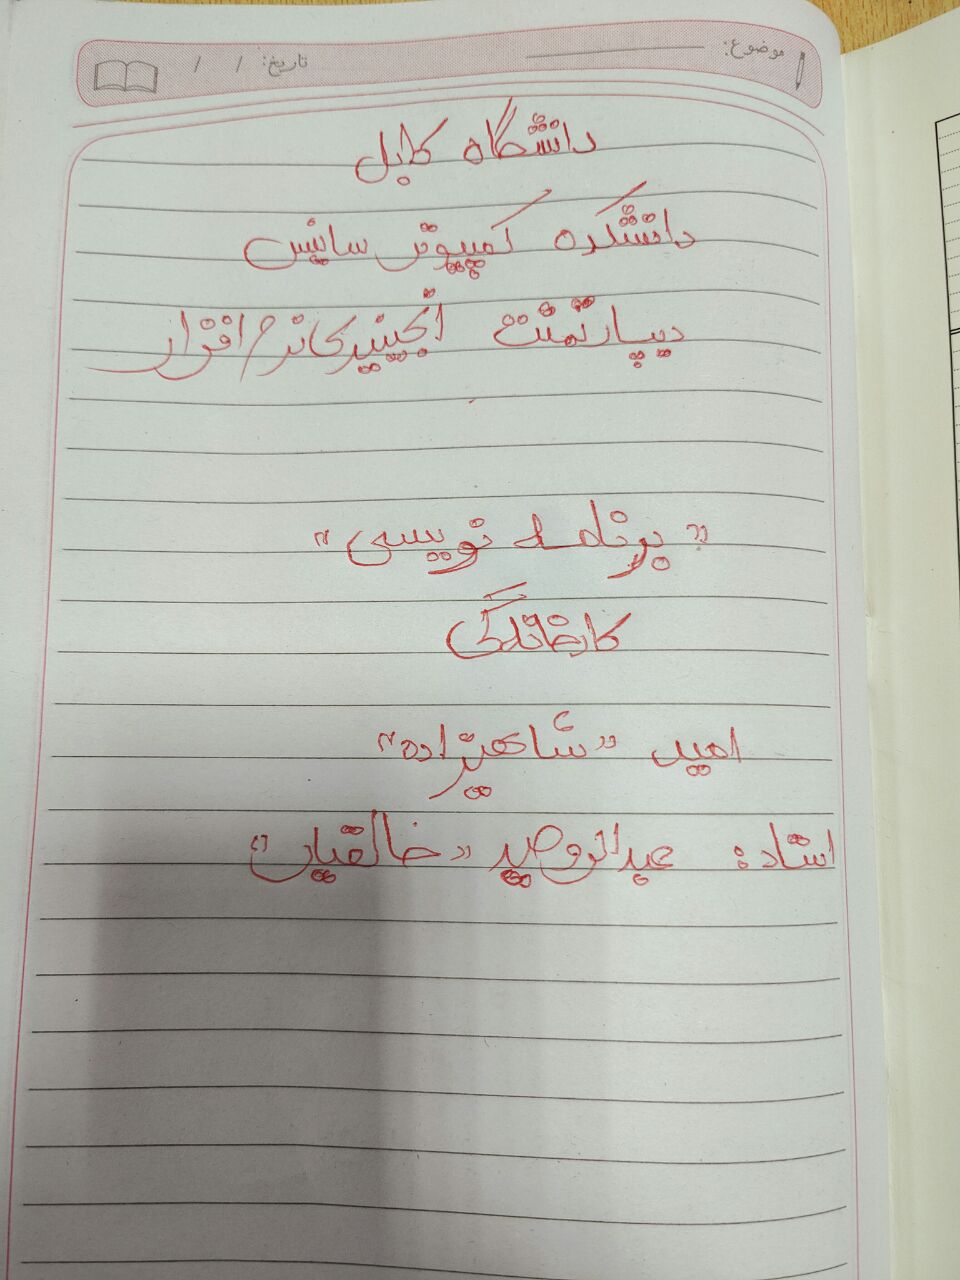 موضوع:
تاریخ: / /
دانشگاه کابل
دانشکده کمپیوتر ساینس
دیپارتمنت انجینیری نرم افزار
«برنامه نویسی»
کارخانگی
امید «شاهیزاده»
استاد: عبدالروحید «خالقیار»